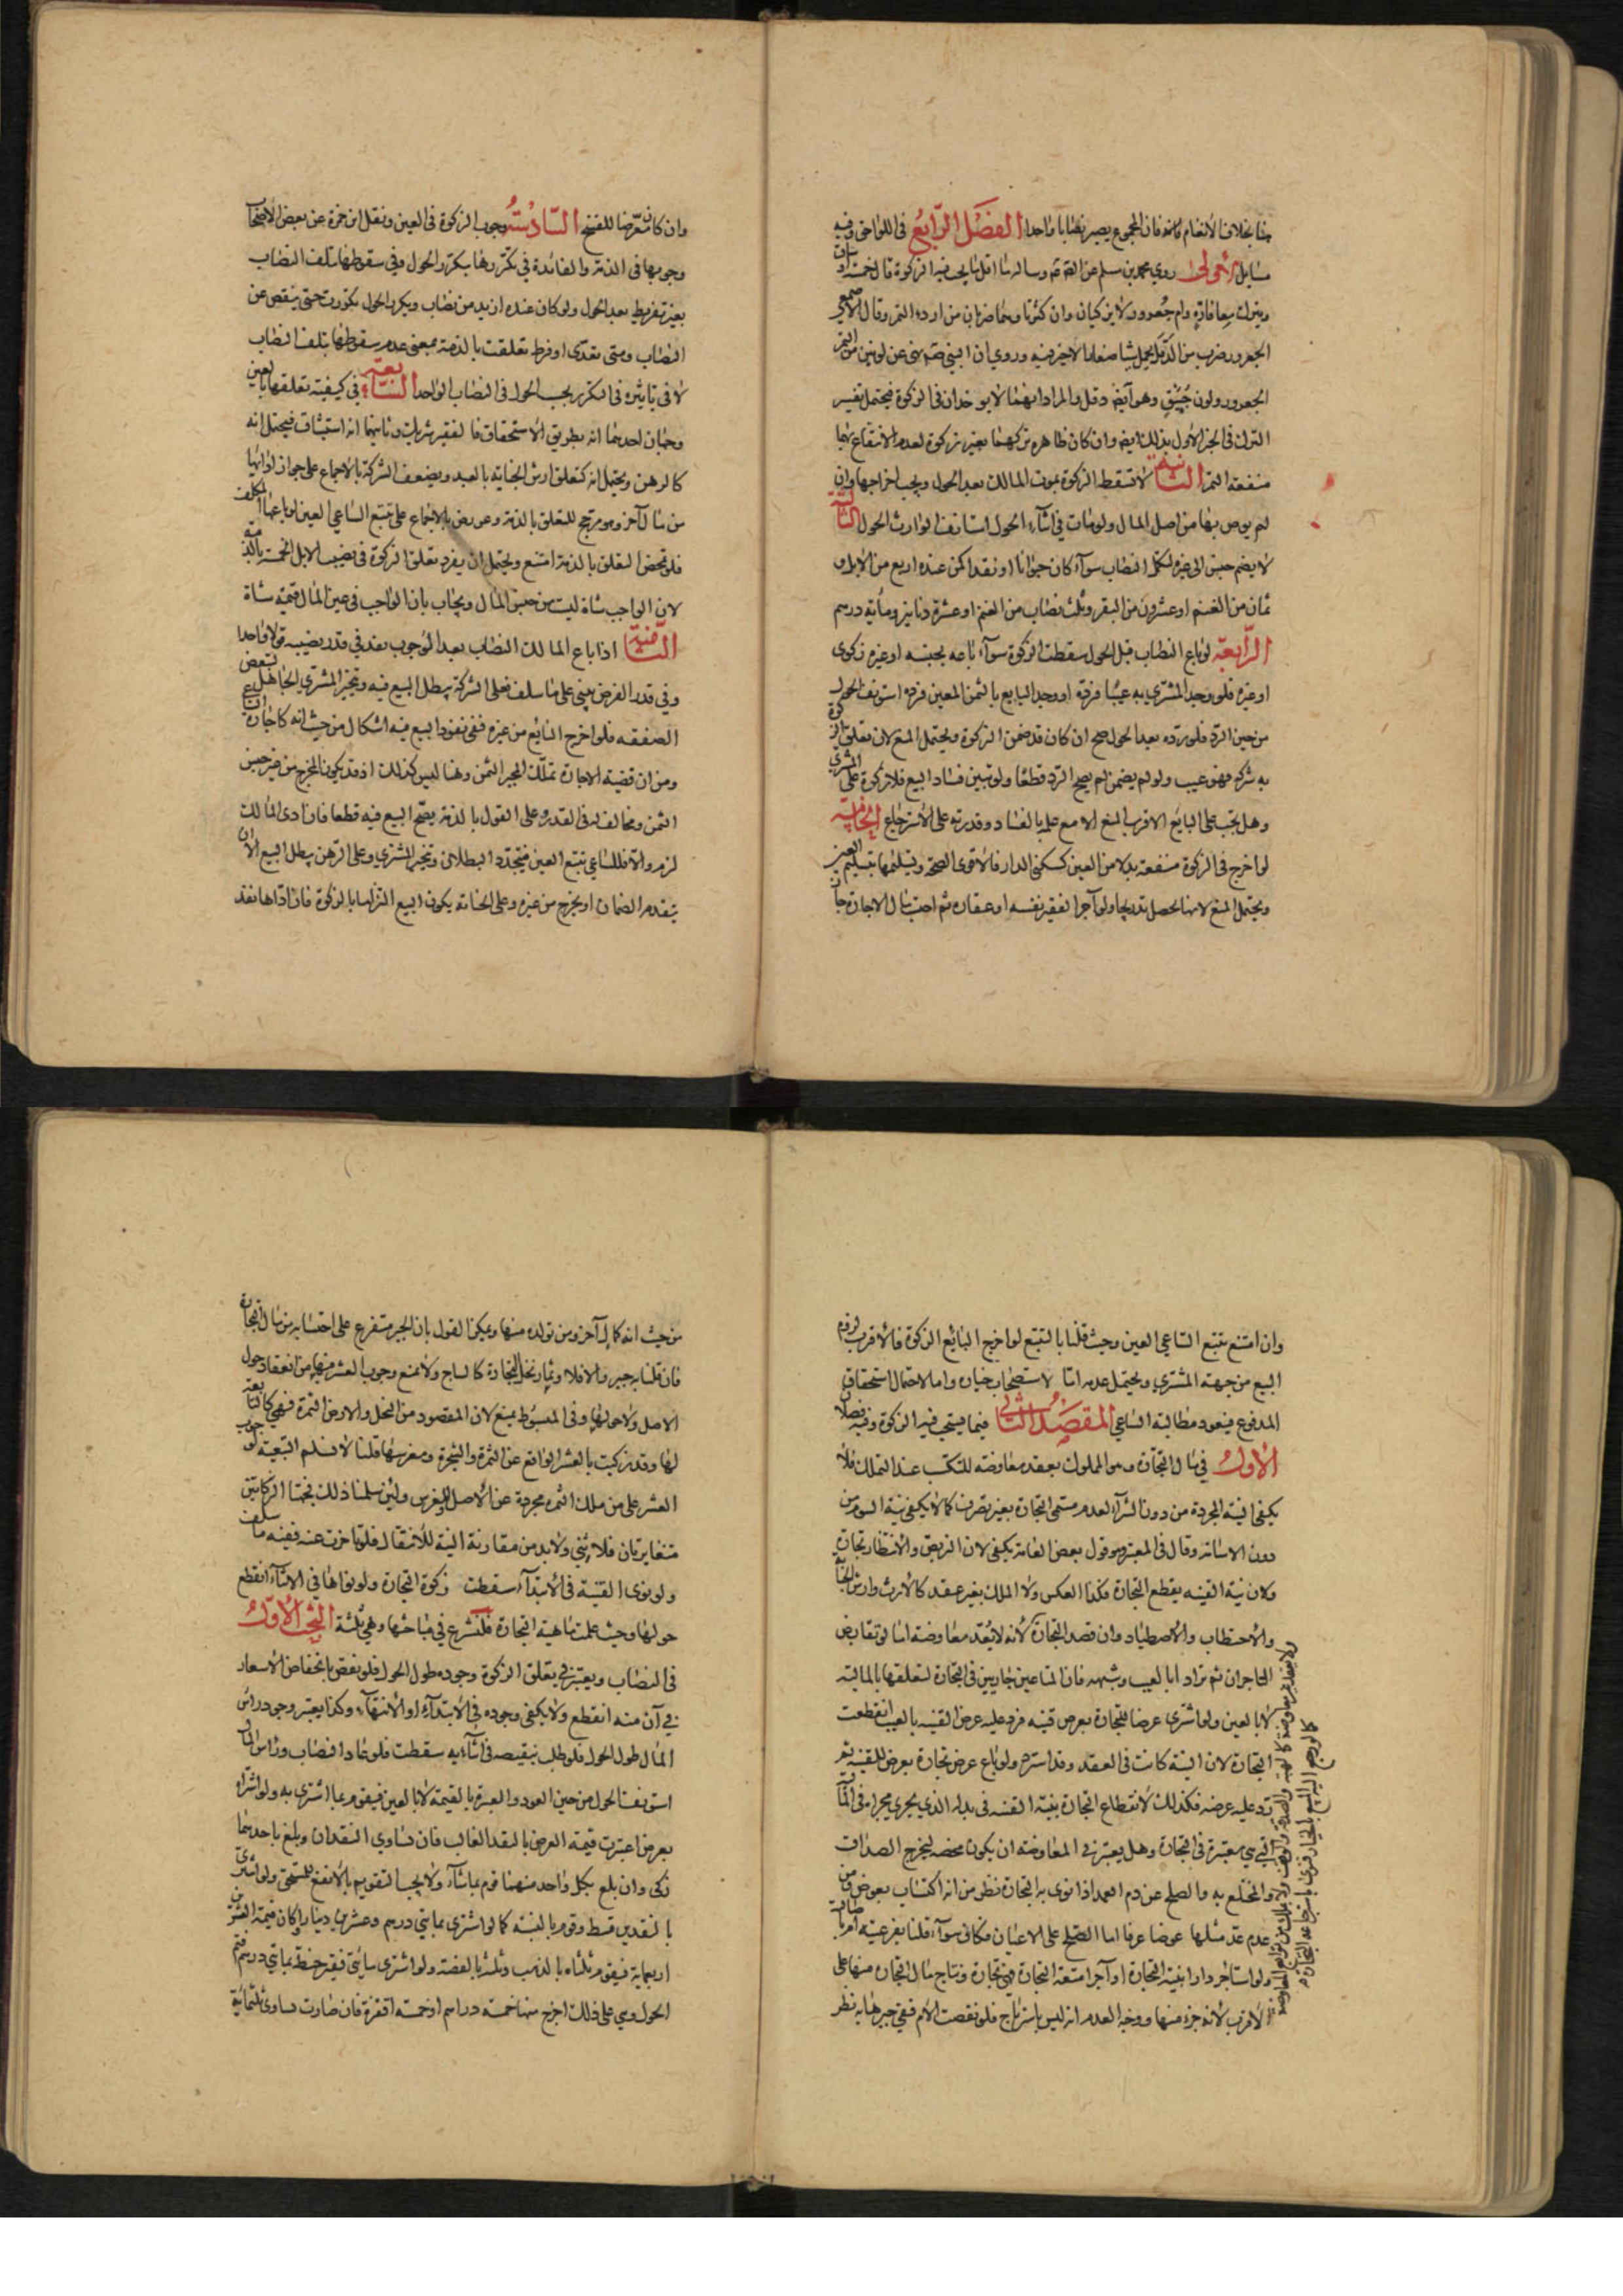 جنا بخلاف الأنعام فانه فان المجموع يصير نصابا واحدا الفصل الرابع في اللواحق وفيه
مسايل الأولى روى محمد بن مسلم عن الصادق وساله ما اقل ما يجب فيه الزكوة قال خمسة اوساق
ويترك معافارة وام جعرور لا يزكيان وان كثرتا وهما ضربان من اردء التمر وقال الاصمعي
الجعرور ضرب من الدقل يحمل شيا صغارا لا خير فيه وروي ان النبي نهى عن لونين من التمر
الجعرور ولون حبيق وهو ايضا دقل والمراد انهما لا يوخذان في الزكوة فيحتمل تفسير
الترك في الخبر الأول بذلك ايضا وان كان ظاهره تركهما بغير زكوة لعدم الانتفاع بهما
منفعة التمر الثانية لا تسقط الزكوة بموت المالك بعد الحول ويجب اخراجها وان
لم يوص بها من اصل المال ولو مات في اثناء الحول استانف الوارث الحول الثالثة
لا يضم جنس الى غيره لتكمل النصاب سواء كان حيوانا او نقدا كمن عنده اربع من الابل و
ثمان من الغنم او عشرون من البقر وثلث نصاب من الغنم او عشرة دنانير ومأية درهم
الرابعة لو باع النصاب قبل الحول سقطت الزكوة سواء باعه بجنسه او غيره زكوى
او غيره فلو وجد المشتري به عيبا فرده او وجد البايع بالثمن المعين فرده استونف الحول
من حين الرد فلو رده بعد الحول صح ان كان قد ضمن الزكوة ويحتمل المنع لان تعلق الزكوة
به شركة فهو عيب ولو لم يضمن لم يصح الرد قطعا ولو تبين فساد البيع فلا زكوة على المشتري
وهل يجب على البايع الاقرب المنع الا مع علمه بالفساد وقدرته على الاسترجاع الخامسة
لو اخرج في الزكوة منفعة بدلا من العين كسكنى الدار فالاقوى الصحة وتسليمها بتسليم العين
ويحتمل المنع لانها تحصل تدريجا ولو آجر الفقير نفسه او عقاره ثم احتسب مال الاجارة جاز
وان كان معرضا للفسخ السادسة وجوب الزكوة في العين ونقل ابن حمزة عن بعض الأصحاب
وجوبها في الذمة والفائدة في تكررها بتكرر الحول وفي سقوطها بتلف النصاب
بغير تفريط بعد الحول ولو كان عنده ازيد من نصاب وتكرر الحول تكررت حتى ينقص عن
النصاب ومتى تعدى او فرط تعلقت بالذمة بمعنى عدم سقوطها بتلف النصاب
لا في تاثيره في التكرر بحسب الحول في النصاب الواحد السابعة في كيفية تعلقها بالعين
وجهان احدهما انه بطريق الاستحقاق فالفقير شريك وثانيهما انه استيثاق فيحتمل انه
كالرهن ويحتمل انه كتعلق ارش الجناية بالعبد ويضعف الشركة بالاجماع على جواز ادائها
من مال آخر وهو مرجح للتعلق بالذمة وعورض بالاجماع على تتبع الساعي العين لو باعها المكلف
فلو تمحض التعلق بالذمة امتنع ويحتمل ان يفرد تعلق الزكوة في نصب الابل الخمسة بالذمة
لان الواجب شاة ليست من جنس المال ويجاب بان الواجب في عين المال قيمة شاة
الثامنة اذا باع المالك النصاب بعد الوجوب نفذ في قدر نصيبه قولا واحدا
وفي قدر الفرض يبني على ما سلف فعلى الشركة يبطل البيع فيه ويتخير المشتري الجاهل لتبعض
الصفقة فلو اخرج البايع من غيره ففي نفوذ البيع فيه اشكال من حيث انه كاجازة الساعي
ومن ان قضية الاجازة تملك المجيز الثمن وهنا ليس كذلك اذ قد يكون المخرج من غير جنس
الثمن ومخالف له في القدر وعلى القول بالذمة يصح البيع فيه قطعا فان ادى المالك
لزم والا فللساعي تتبع العين فيتجدد البطلان ويتخير المشتري وعلى الرهن يبطل البيع الا ان
يتقدم الضمان او يخرج من غيره وعلى الجناية يكون البيع التزاما بالزكوة فان اداها نفذ
وان امتنع تتبع الساعي العين وحيث قلنا بالتتبع لو اخرج البايع الزكوة فالاقرب لزوم
البيع من جهة المشتري ويحتمل عدمه اما لاستصحاب خياره واما لاحتمال استحقاق
المدفوع فيعود مطالبة الساعي المقصد الثاني فيما يستحب فيه الزكوة وفيه فصلان
الأول في مال التجارة وهو المملوك بعقد معاوضة للتكسب عند التملك فلا
يكفي النية المجردة من دون الشراء لعدم مسمى التجارة بغير تصرف كما لا يكفي نية السوم من
دون الاسامة وقال في المعتبر وهو قول بعض العامة يكفي لان التربص والانتظار تجارة
ولان نية القنية يقطع التجارة فكذا العكس ولا الملك بغير عقد كالارث وارش الجناية
والاحتطاب والاصطياد وان قصد التجارة لانه لا يعد معاوضة اما لو تقايض
التاجران ثم تراد ابا لعيب وشبهه فان المتاعين جاريين في التجارة لتعلقها بالمالية
لا بالعين ولو اشترى عرضا للتجارة بعرض قنية فرد عليه عرض القنية بالعيب انقطعت
التجارة لان النية كانت في العقد وقد استرد ولو باع عرض تجارة بعرض للقنية ثم
رد عليه عرضه فكذلك لانقطاع التجارة بنية القنية في بدله الذي يجري مجراه في المالية
التي هي معتبرة في التجارة وهل يعتبر في المعاوضة ان يكون محضه ليخرج الصداق
والمختلع به والصلح عن دم العمد اذا نوى به التجارة نظر من انه اكتساب بعوض ومن
عدم عد مثلها عوضا عرفا اما الصلح على الاعيان فكافي سواء قلنا بفرعيته ام باصالته
ولو استاجر دارا بنية التجارة او آجر امتعة التجارة فهي تجارة ونتاج مال التجارة منها على
الاقرب لانه جزء منها ووجه العدم انه ليس باسترباح فلو نقصت الام ففي جبرها به نظر
من حيث انه كمال آخر ومن تولده منها ويمكن القول بان الجبر متفرع على احتسابه من مال التجارة
فان قلنا به جبر والا فلا وثمار نخل التجارة كالنتاج ولا يمنع وجوب العشر فيها من انعقاد حول
الاصل ولا حولها وفي المبسوط يمنع لان المقصود من النخل والارض الثمرة فهي كالتابعة
لها وقد زكيت بالعشر الواقع عن الثمرة والشجرة ومغرسها قلنا لا نسلم التبعية لوجوب
العشر على من ملك الثمرة مجردة عن الاصل والمغرس ولئن سلمنا ذلك فجهتا الزكاتين
متغايرتان فلا ثنى ولا بد من مقارنة النية للانتقال فلو تاخرت عنه ففيه ما سلف
ولو نوى القنية في الابتداء سقطت زكوة التجارة ولو نواها في الاثناء انقطع
حولها وحيث علمت ماهية التجارة فلنشرع في مباحثها وهي ثلثة البحث الأول
في النصاب ويعتبر في تعلق الزكوة وجوده طول الحول فلو نقص بانخفاض الاسعار
في آن منه انقطع ولا يكفي وجوده في الابتداء او الانتهاء وكذا يعتبر وجود راس
المال طول الحول فلو طلب بنقيصة في اثنائه سقطت فلو عاد النصاب وراس المال
استونف الحول من حين العود والعبرة بالقيمة لا بالعين فيقوم بما اشترى به ولو اشتراه
بعرض اعتبرت قيمة العرض بالنقد الغالب فان تساوى النقدان وبلغ باحدهما
زكى وان بلغ بكل واحد منهما قوم بما شاء ولا يجب التقويم بالانفع للمستحق ولو اشترى
بالنقدين قسط وقوم بالنسبة كما لو اشترى بمايتي درهم وعشرين دينارا وكان قيمة العشرين
اربعماية فيقوم ثلثاه بالذهب وثلثه بالفضة ولو اشترى مايتي قفيز حنطة بمايتي درهم فتم
الحول وهي على ذلك اخرج منها خمسة دراهم او خمسة اقفزة فان صارت تساوي ثلثماية